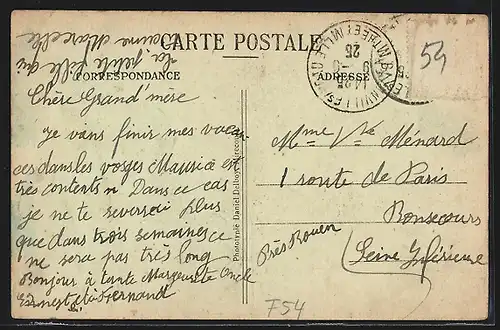 La petite fille qui
t'aime Marcelle
CARTE POSTALE
CORRESPONDANCE
ADRESSE
54
Chère Grand'mère
Je vans finir mes vacan
ces dans les vosges Maurice est
très contents n' Dans ce cas
je ne te reverrai plus
que dans trois semaines ce
ne sera pas très long
Bonjour à tante Marguerite oncle
Ernest et à Fernand
Phototypie Daniel Delboy
Mme Vve Ménard
1 route de Paris
Bonsecours
Près Rouen
(Seine Inférieure
F54